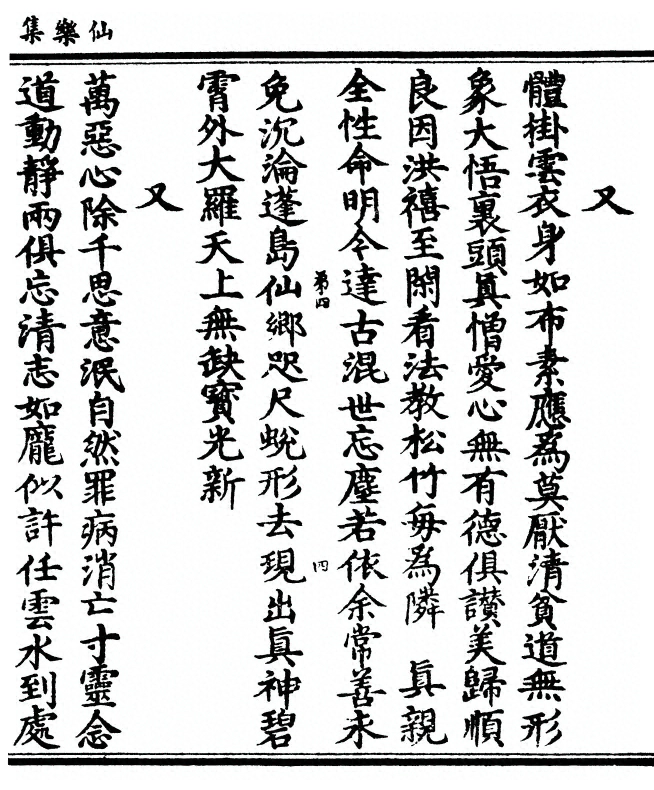 仙樂集
又
體掛雲衣身如布素應爲莫厭清貧道無形
象大悟裏頭眞憎愛心無有德俱讃美歸順
良因洪禧至閑看法教松竹每爲隣　眞親
全性命明今達古混世忘塵若依余常善未
第四
四
免沉淪蓬島仙鄉咫尺蛻形去現出眞神碧
霄外大羅天上無缺寳光新
又
萬惡心除千思意泯自然罪病消亡寸靈念
道動靜兩俱忘清志如龐似許任雲水到處